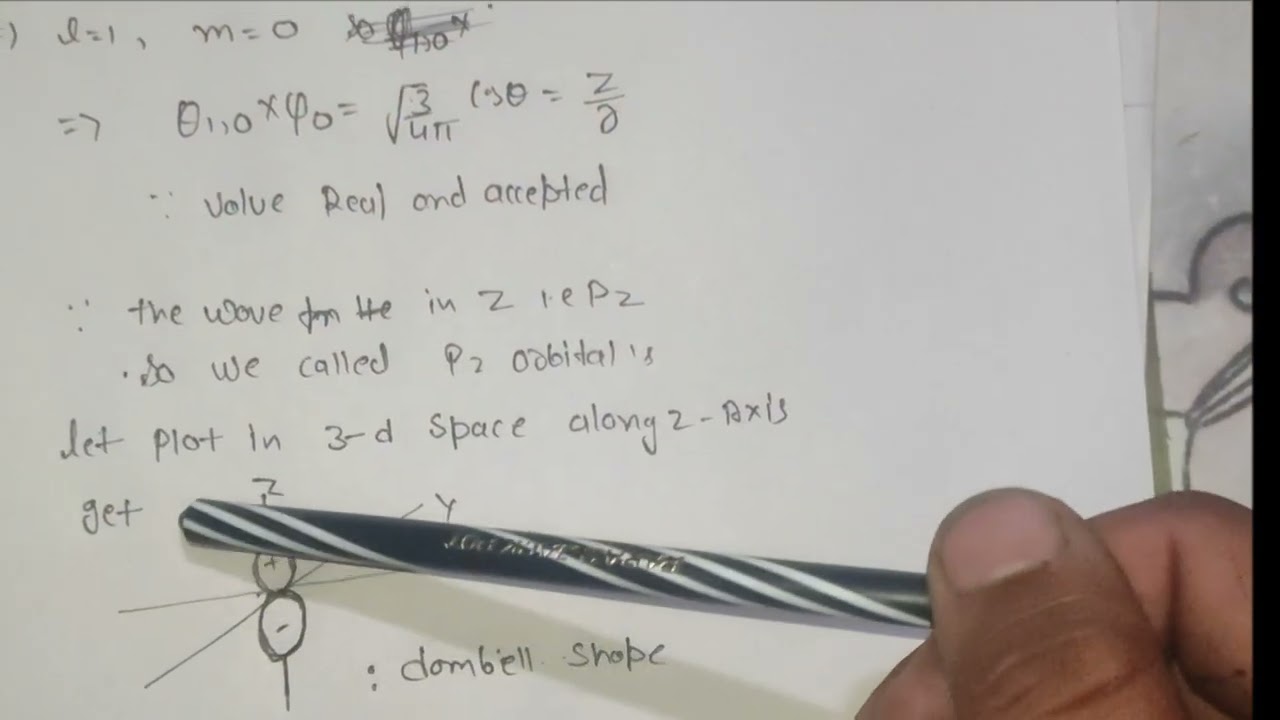 l=1, m=0
=> θ1,0 × φ0 = √3/4π cosθ = z/2
∵ value Real and accepted
∵ the wave in Z i.e Pz
∴ so we called Pz oobital is
let plot in 3-d space along z-Axis
get Z Y
+
-
: dombell shope